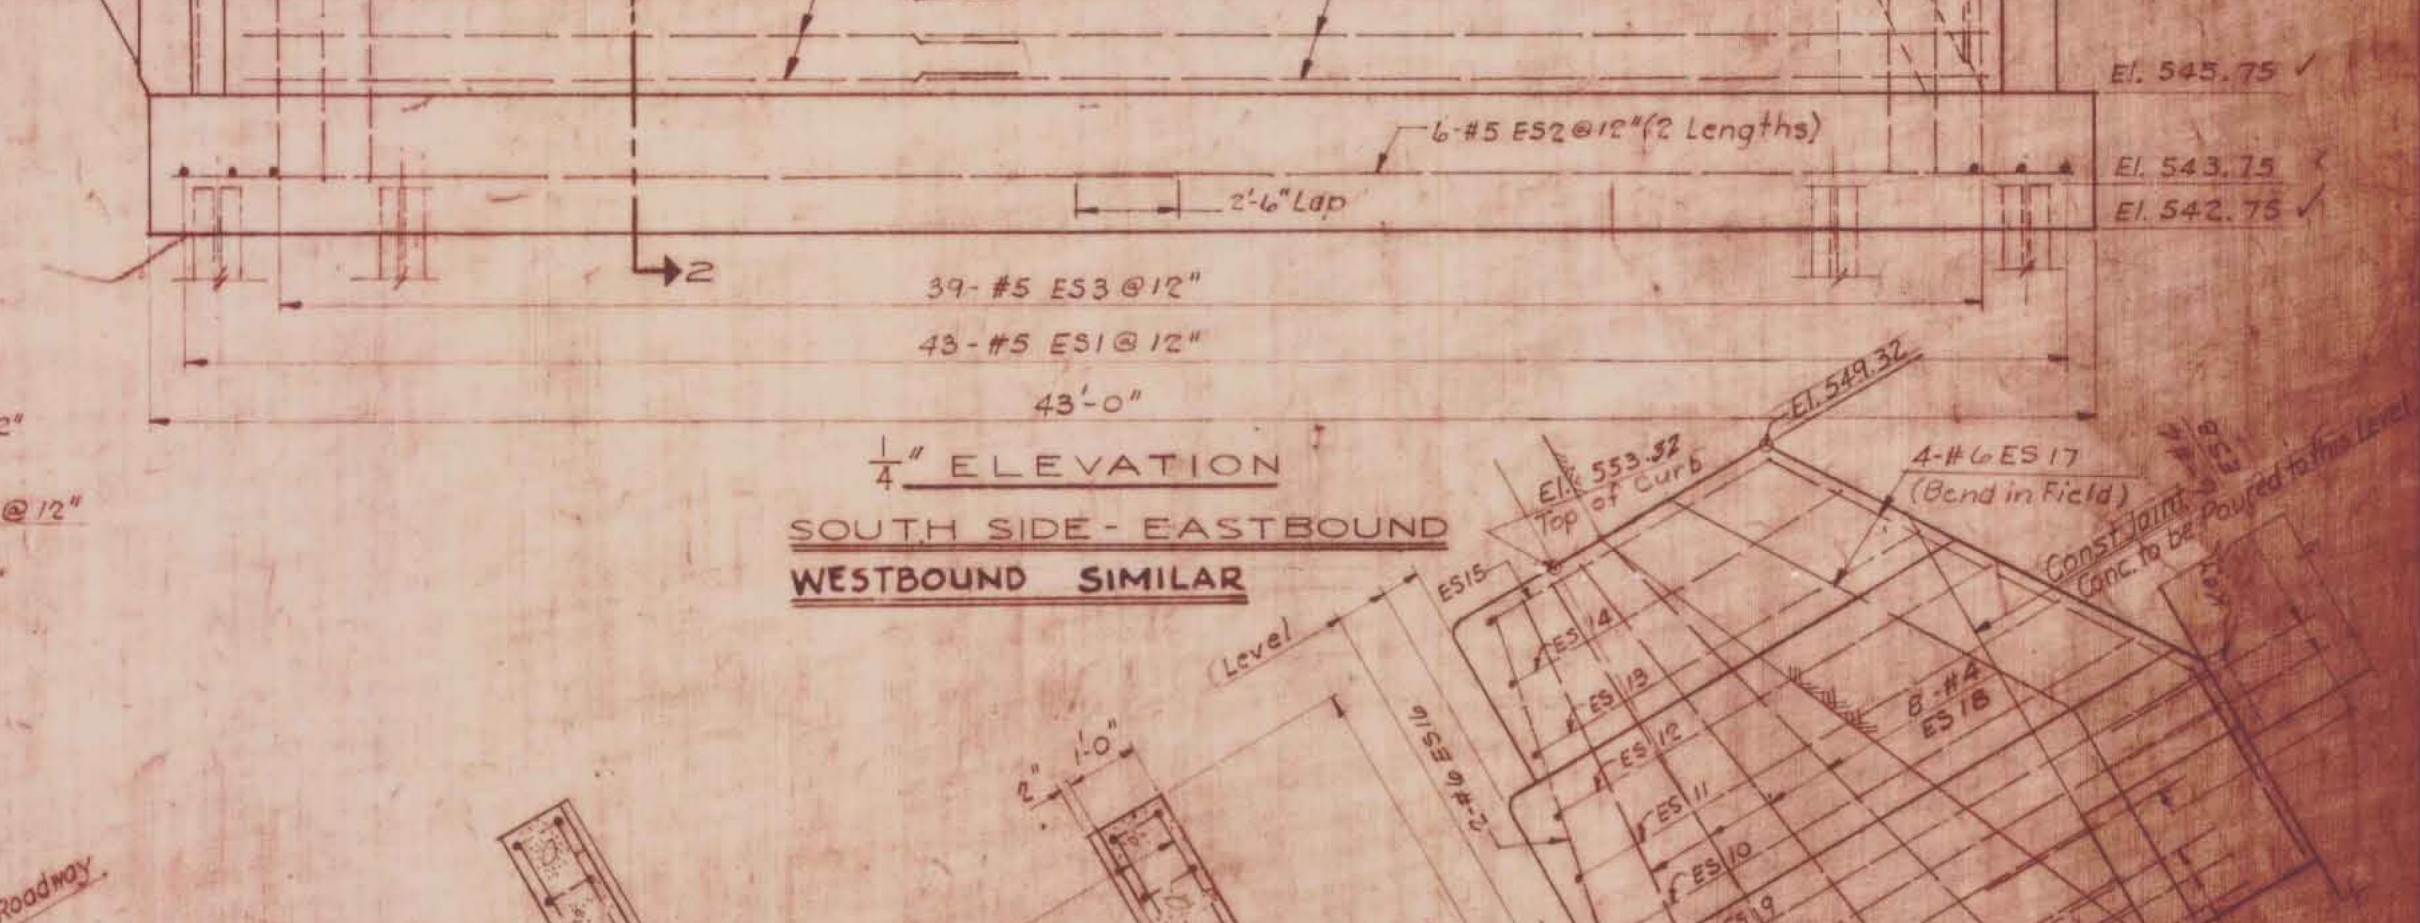 El. 545.75 ✓
6-#5 ES2@12"(2 Lengths)
El. 543.75
2'-6" Lap
El. 542.75 ✓
2
39-#5 ES3 @12"
43-#5 ES1@12"
43'-0"
2"
@12"
1/4" ELEVATION
SOUTH SIDE - EASTBOUND
WESTBOUND SIMILAR
El. 549.32
El. 553.32
Top of Curb
4-#6 ES17
(Bend in Field)
Const. Joint
Conc. to be Poured to this Level
ES15
ES14
ES13
ES12
ES11
ES10
8-#4
ES18
(Level
2-#6 ES16
1'-0"
2"
Roadway.